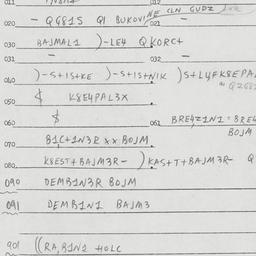 011 012
020 - QG81S Q1 BUKOVINE CLN GUDZ
021
030 BAJMAL1 )-LE4 QKORC+
031 032
040 )-S+1S+KE )-S+1S+NIK )S+L4FK8EPA
050 $ K8E4PAL3X
060 $ 061 BRE4Z1N1=BRE4
BOJM
070 B1C+1N3R XX BOJM
080 K8EST+BAJM3R- ) KAST+T+BAJM3R- Q
090 DEMB1N3R BOJM
091 DEMB1N1 BAJM3
901 ((RA,B1N1 HOLC